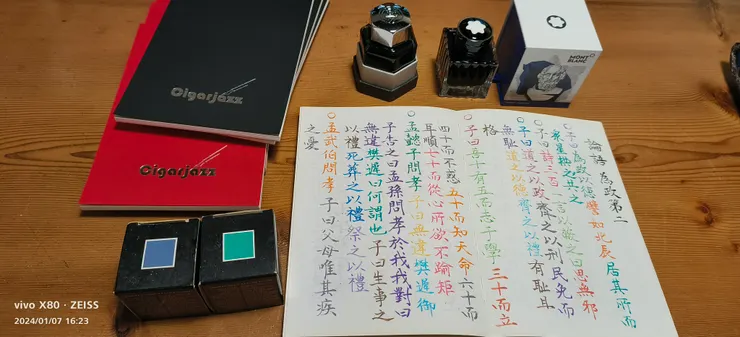 Cigarjazz
Cigarjazz
MONT
BLANC
論語 為政第二
○子曰為政以德譬如北辰居其所而
衆星拱之
○子曰詩三百一言以蔽之曰思無邪
○子曰道之以政齊之以刑民免而
無恥道之以德齊之以禮有恥且
格
○子曰吾十有五而志于學三十而立
四十而不惑五十而知天命六十而
耳順七十而從心所欲不踰矩
○孟懿子問孝子曰無違樊遲御
子告之曰孟孫問孝於我我對曰
無違樊遲曰何謂也子曰生事之
以禮死葬之以禮祭之以禮
○孟武伯問孝子曰父母唯其疾
之憂
vivo X80 · ZEISS
2024/01/07 16:23